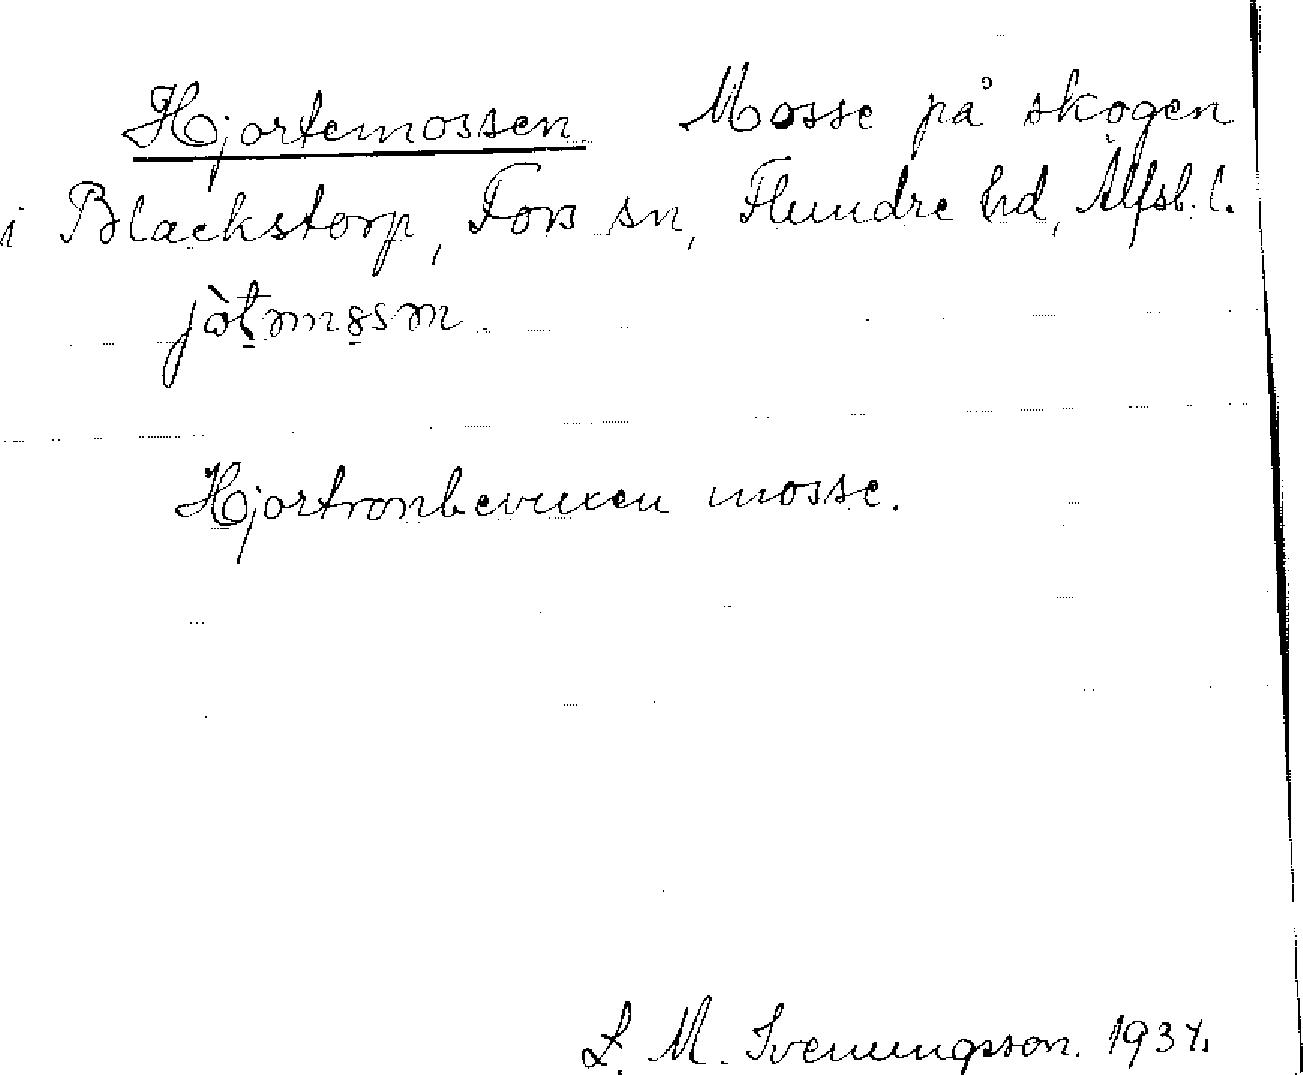 Hjortemossen Mosse på skogen
i Blackstorp, Fors sn, Flundre hd, Älfsb. l.
Hjortronbevuxen mosse.
L. M. Svenungsson. 1934.